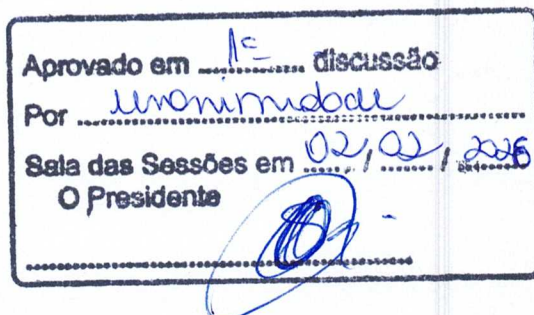 Aprovado em 1ª discussão
Por unanimidade
Sala das Sessões em 02/02/2026
O Presidente